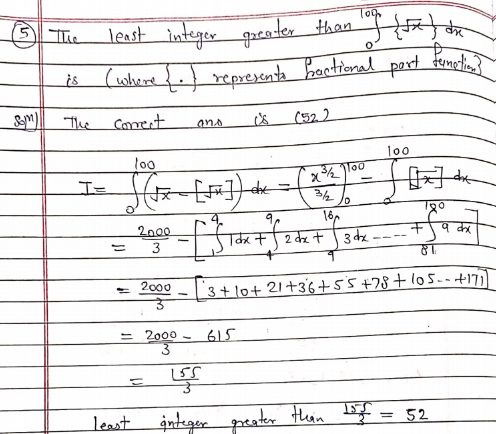 5 The least integer greater than ∫₀¹⁰⁰ {√x} dx
is (where {.} represents fractional part function)
Solⁿ) The correct ans is (52)
I = ∫₀¹⁰⁰ (√x - [√x]) dx = (x^{3/2} / 3/2)₀¹⁰⁰ - ∫₀¹⁰⁰ [√x] dx
= 2000/3 - [∫₁⁴ 1dx + ∫₄⁹ 2dx + ∫₉¹⁶ 3dx ---- + ∫₈₁¹⁰⁰ 9 dx]
= 2000/3 - [3+10+21+36+55+78+105--+171]
= 2000/3 - 615
= 155/3
least integer greater than 155/3 = 52